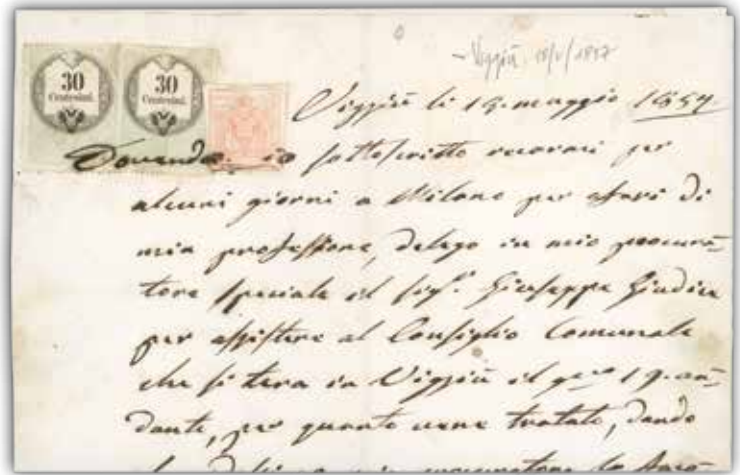 Viggiù 18/V/1857
30 Centesimi.
30 Centesimi.
Viggiù li 18. maggio 1857.
Dovendo io sottoscritto recarmi per
alcuni giorni a Milano per afari di
mia professione, delego in mio procura-
tore speciale il sig.r Giuseppe Giudici
per assistere al Consiglio Comunale
che si terà in Viggiù il g.no 19. an-
dante, per quanto viene trattato, dando